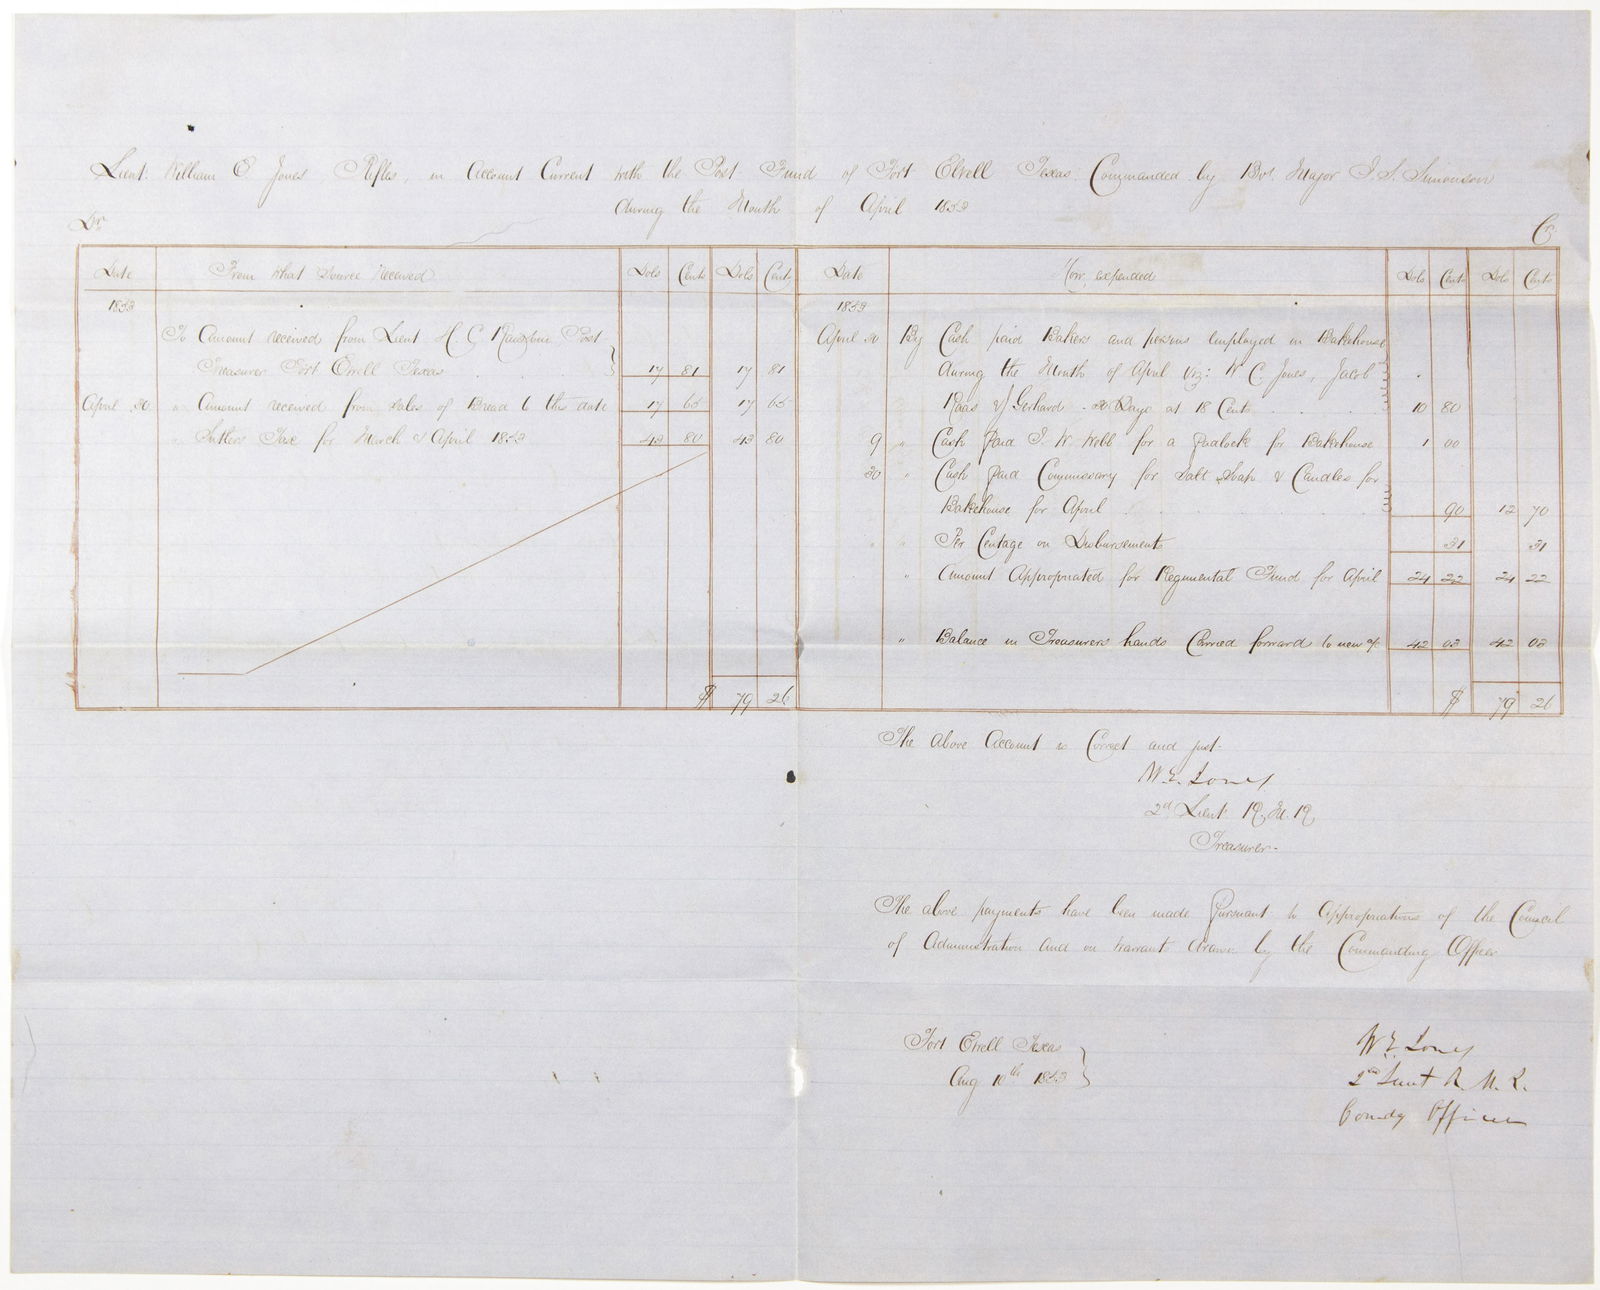 Lieut. William E Jones Rifles, in Account Current with the Post Fund of Fort Ewell Texas: Commanded by Bvt. Major J. S. Simonson
during the Month of April 1853
Dr
Cr
Date From what source received Dols Cents Dols Cents
1853
To Amount received from Lieut H. C. Post
Treasurer Fort Ewell Texas 17 81 17 81
April 30 " Amount received from sales of Bread to this date 17 65 17 65
" Sutlers Tax for March & April 1853 43 80 43 80
$ 79 26
Date How expended Dols Cents Dols Cents
1853
April 30 By Cash paid Bakers and persons employed in Bakehouse
during the Month of April viz: W C. Jones, Jacob
Haas & Gerhard 20 Days at 18 Cents 10 80
9 " Cash Paid J. W. Webb for a padlock for Bakehouse 1 00
30 " Cash Paid Commissary for Salt Soap & Candles for
Bakehouse for April 90 12 70
" " Per Centage on Disbursements 31 31
" Amount Appropriated for Regimental Fund for April 24 22 24 22
" Balance in Treasurers hands Carried forward to new a/c 42 03 42 03
$ 79 26
The above Account is Correct and just.
W. E. Jones
2d Lieut. R. M. R.
Treasurer.
The above payments have been made Pursuant to appropriations of the Council
of Administration and on warrants drawn by the Commanding Officer
Fort Ewell Texas
Aug 10th 1853
W. E. Jones
2nd Lieut R. M. R.
Comdg Officer